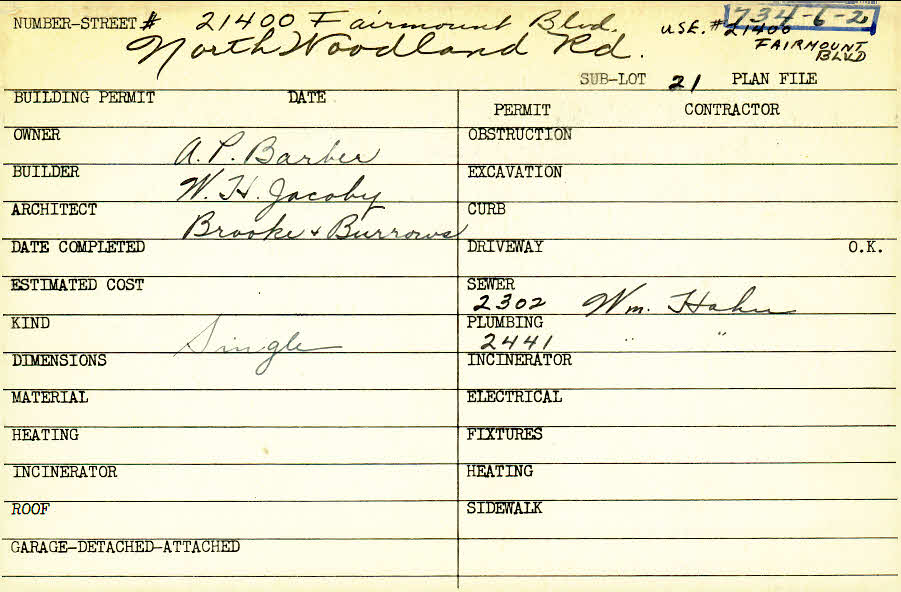 NUMBER-STREET # 21400 Fairmount Blvd. USE. # 21400 734-6-20
North Woodland Rd. FAIRMOUNT BLVD
SUB-LOT 21 PLAN FILE
BUILDING PERMIT DATE
PERMIT CONTRACTOR
OWNER A. P. Barber
OBSTRUCTION
BUILDER W. H. Jacoby
EXCAVATION
ARCHITECT Brooke + Burrows
CURB
DATE COMPLETED
DRIVEWAY O.K.
ESTIMATED COST
SEWER
2302 Wm. Hahn
KIND Single
PLUMBING
2441 " "
DIMENSIONS
INCINERATOR
MATERIAL
ELECTRICAL
HEATING
FIXTURES
INCINERATOR
HEATING
ROOF
SIDEWALK
GARAGE-DETACHED-ATTACHED